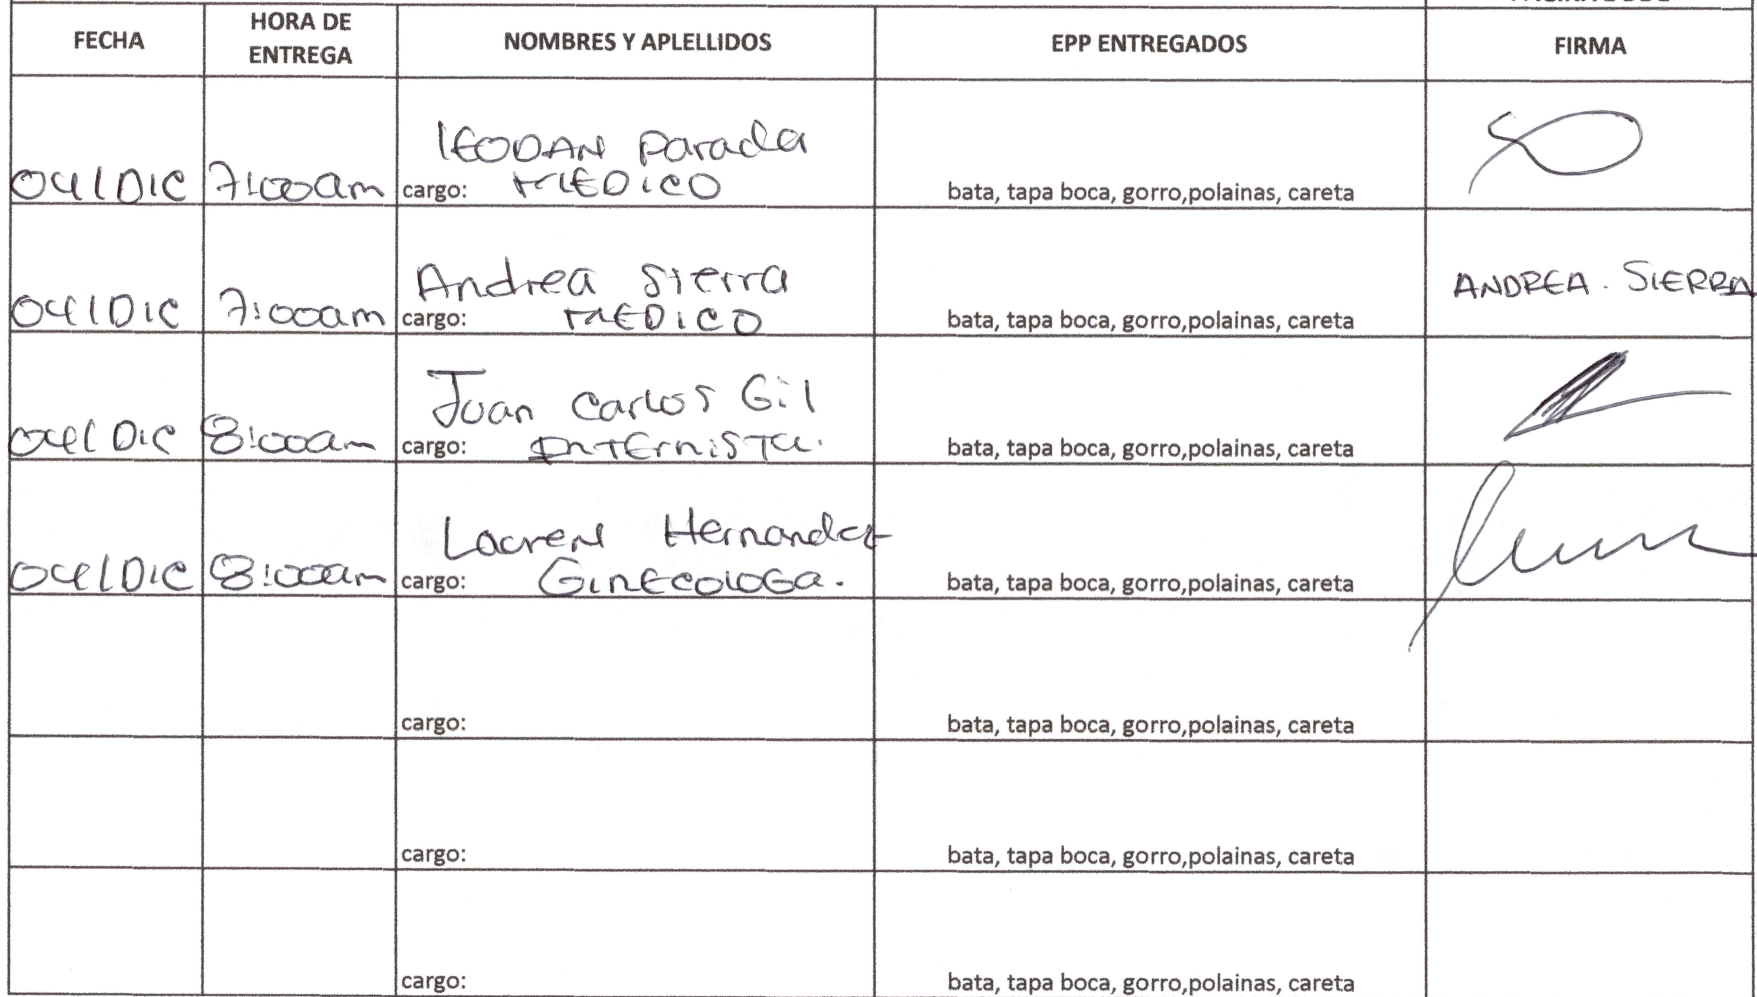 FECHA HORA DE ENTREGA NOMBRES Y APLELLIDOS EPP ENTREGADOS FIRMA
04/DIC 7:00am LEODAN Parada
cargo: MEDICO bata, tapa boca, gorro,polainas, careta
04/DIC 7:00am Andrea Sierra
cargo: MEDICO bata, tapa boca, gorro,polainas, careta ANDREA. SIERRA
04/DIC 8:00am Juan Carlos Gil
cargo: INTErnISTa. bata, tapa boca, gorro,polainas, careta
04/DIC 8:00am Lauren Hernandez
cargo: GINECOLOGa. bata, tapa boca, gorro,polainas, careta
cargo: bata, tapa boca, gorro,polainas, careta
cargo: bata, tapa boca, gorro,polainas, careta
cargo: bata, tapa boca, gorro,polainas, careta